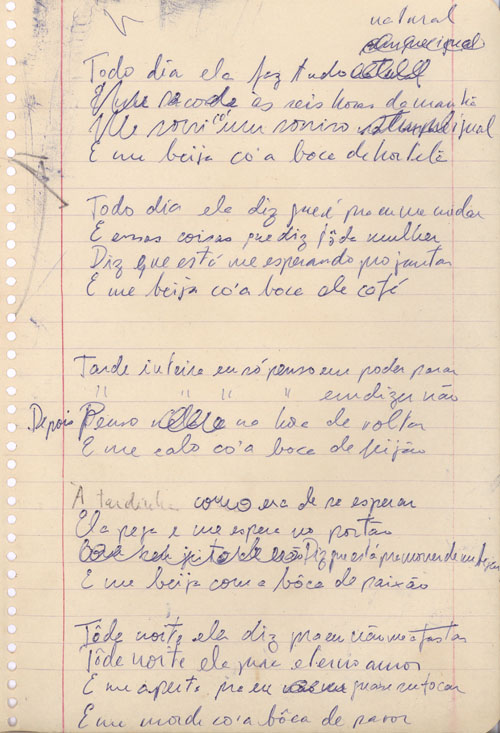 natural
sempre igual
Todo dia ela faz tudo
Me sacode às seis horas da manhã
Me sorri um sorriso igual
E me beija co'a boca de hortelã
Todo dia ela diz que é pra eu me cuidar
E essas coisas que diz tôda mulher
Diz que está me esperando pro jantar
E me beija co'a boca de café
Tarde inteira eu só penso em poder parar
" " " " em dizer não
Depois Penso na hora de voltar
E me calo co'a boca de feijão
A tardinha como era de se esperar
Ela pega e me espera no portão
Diz que está pra morrer de me beijar
E me beija com a bôca de paixão
Tôda noite ela diz pra eu não me afastar
Tôda noite ela jura eterno amor
E me aperta pra eu quase sufocar
E me morde co'a bôca de pavor